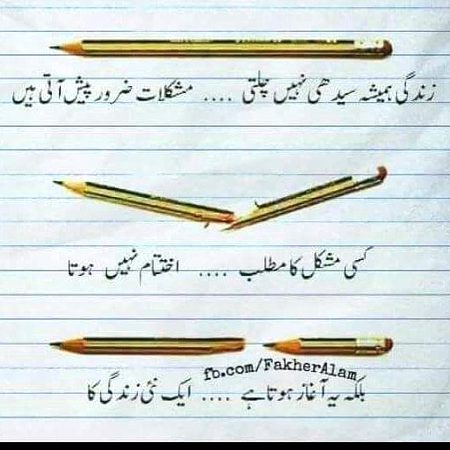 زندگی ہمیشہ سیدھی نہیں چلتی .... مشکلات ضرور پیش آتی ہیں
کسی مشکل کا مطلب .... اختتام نہیں ہوتا
fb.com/FakherAlam
بلکہ یہ آغاز ہوتا ہے .... ایک نئی زندگی کا